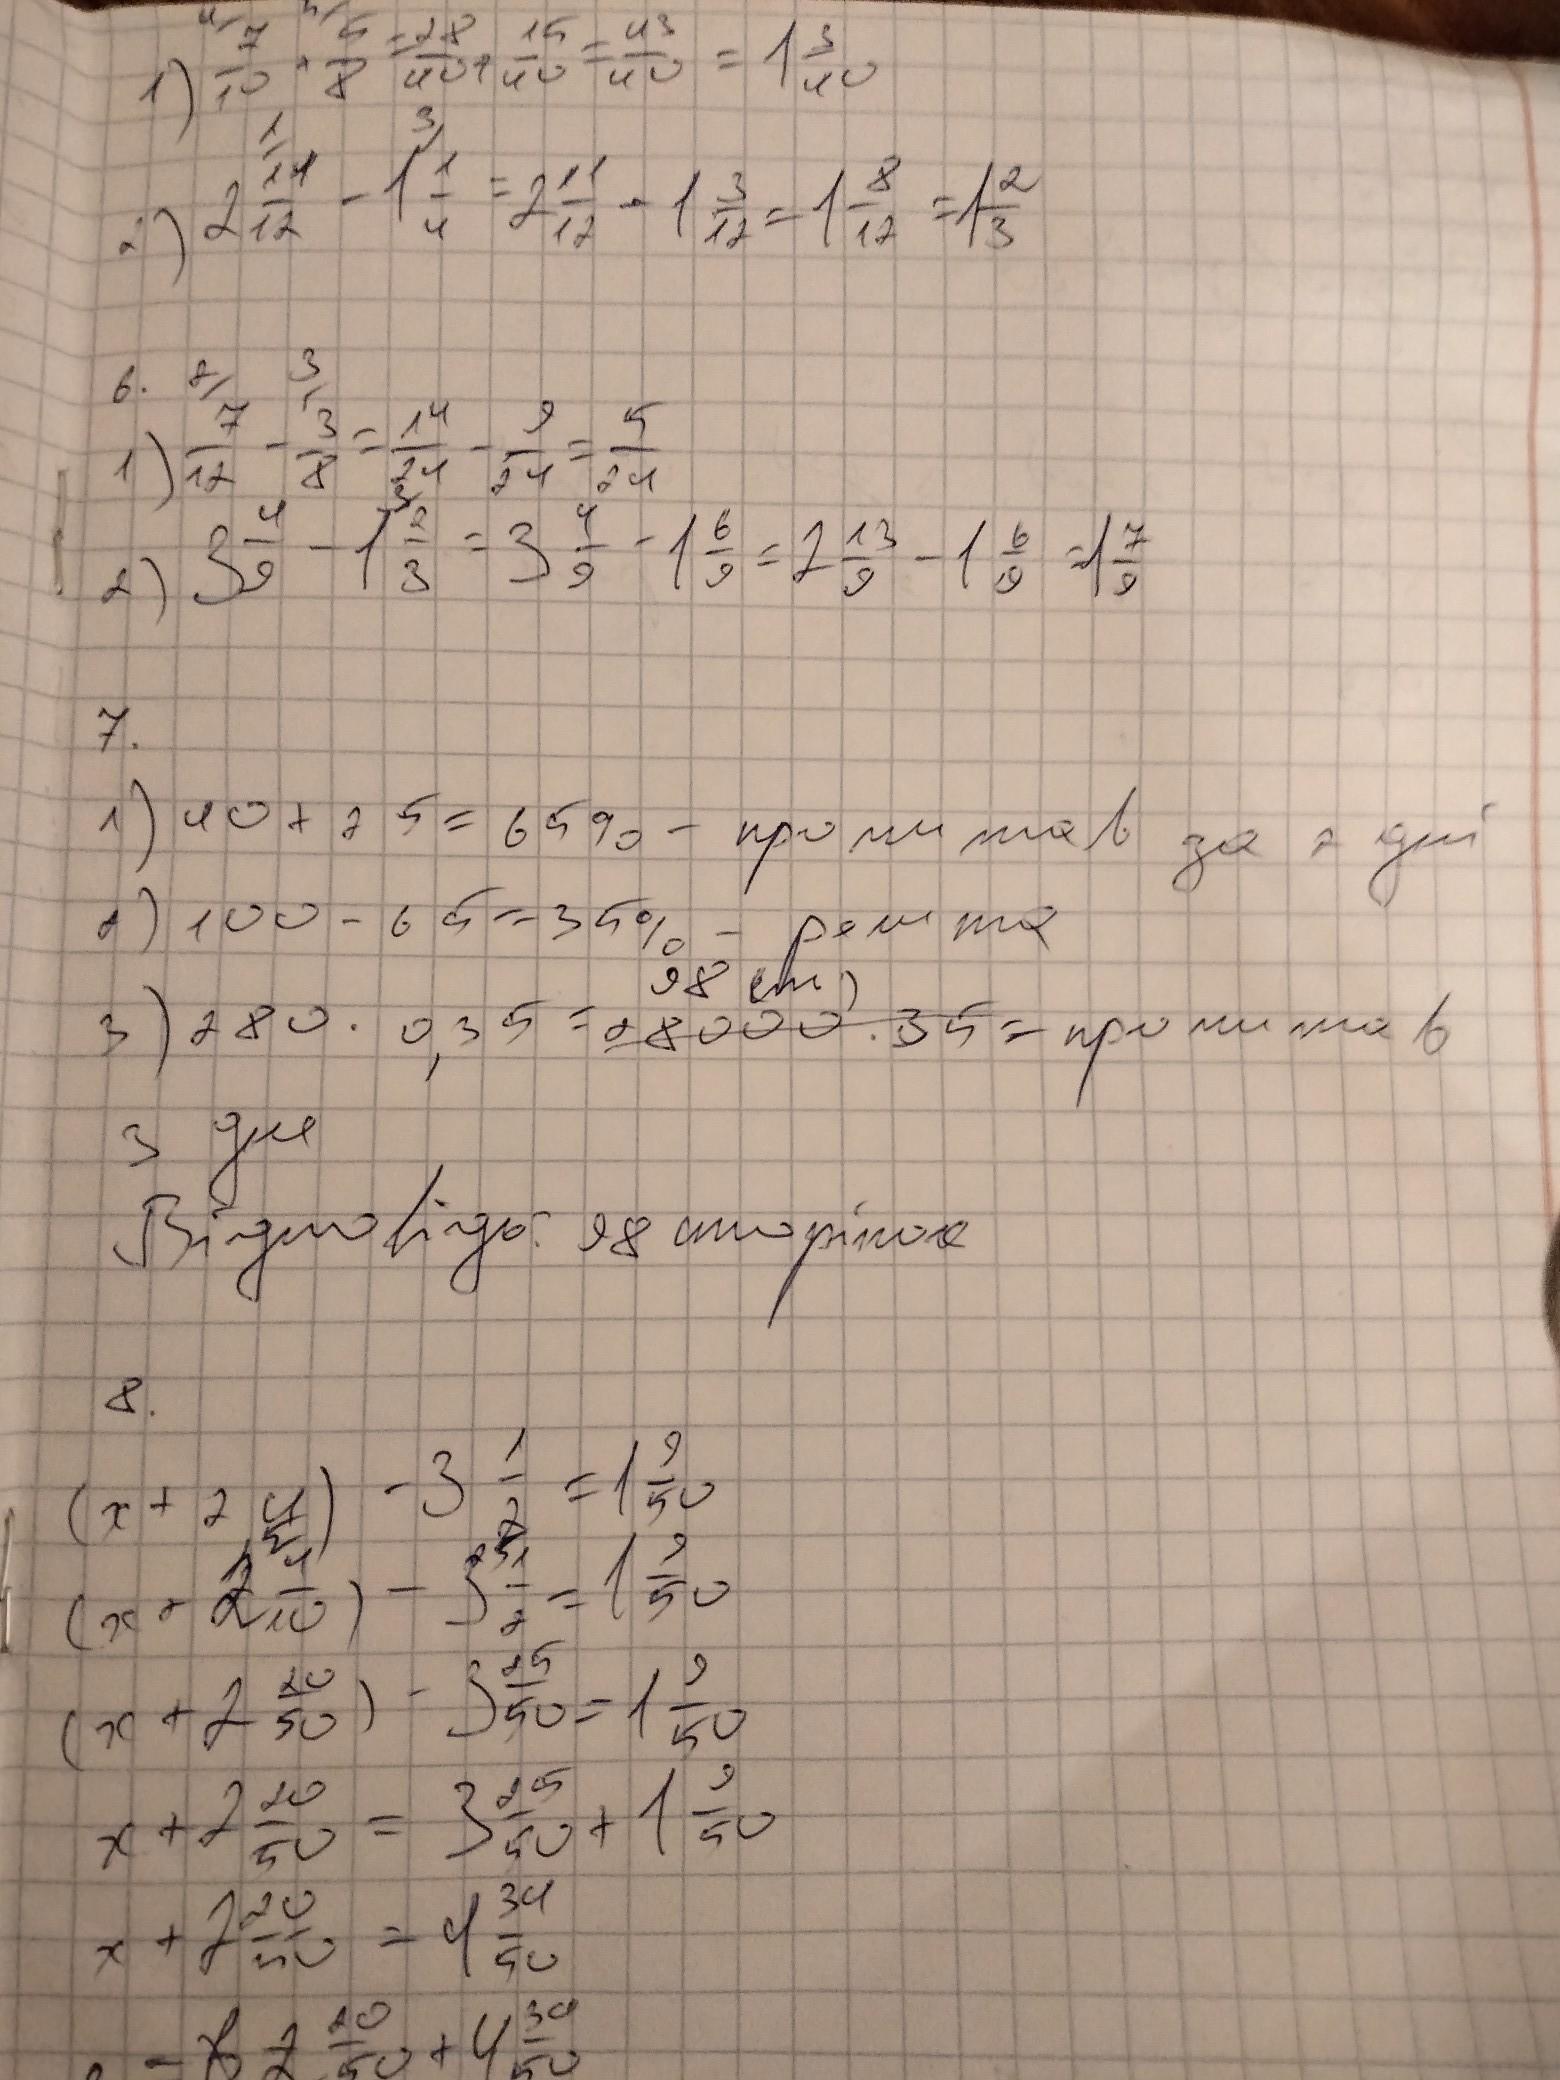 1) 7/10 + 5/8 = 28/40 + 15/40 = 43/40 = 1 3/40
2) 2 11/12 - 1 1/4 = 2 11/12 - 1 3/12 = 1 8/12 = 1 2/3
6.
1) 7/12 - 3/8 = 14/24 - 9/24 = 5/24
2) 3 4/9 - 1 2/3 = 3 4/9 - 1 6/9 = 2 13/9 - 1 6/9 = 1 7/9
7.
1) 40 + 25 = 65% - прочитав за 2 дні
2) 100 - 65 = 35% - решта
98 (ст)
3) 280 · 0,35 = 28000 · 35 = прочитав
3 дня
Відповідь: 98 сторінок
8.
(x + 2 4/) - 3 1/2 = 1 9/50
(x + 2 4/10) - 3 1/2 = 1 9/50
(x + 2 20/50) - 3 25/50 = 1 9/50
x + 2 20/50 = 3 25/50 + 1 9/50
x + 2 20/50 = 4 34/50
2 20/50 + 4 34/50